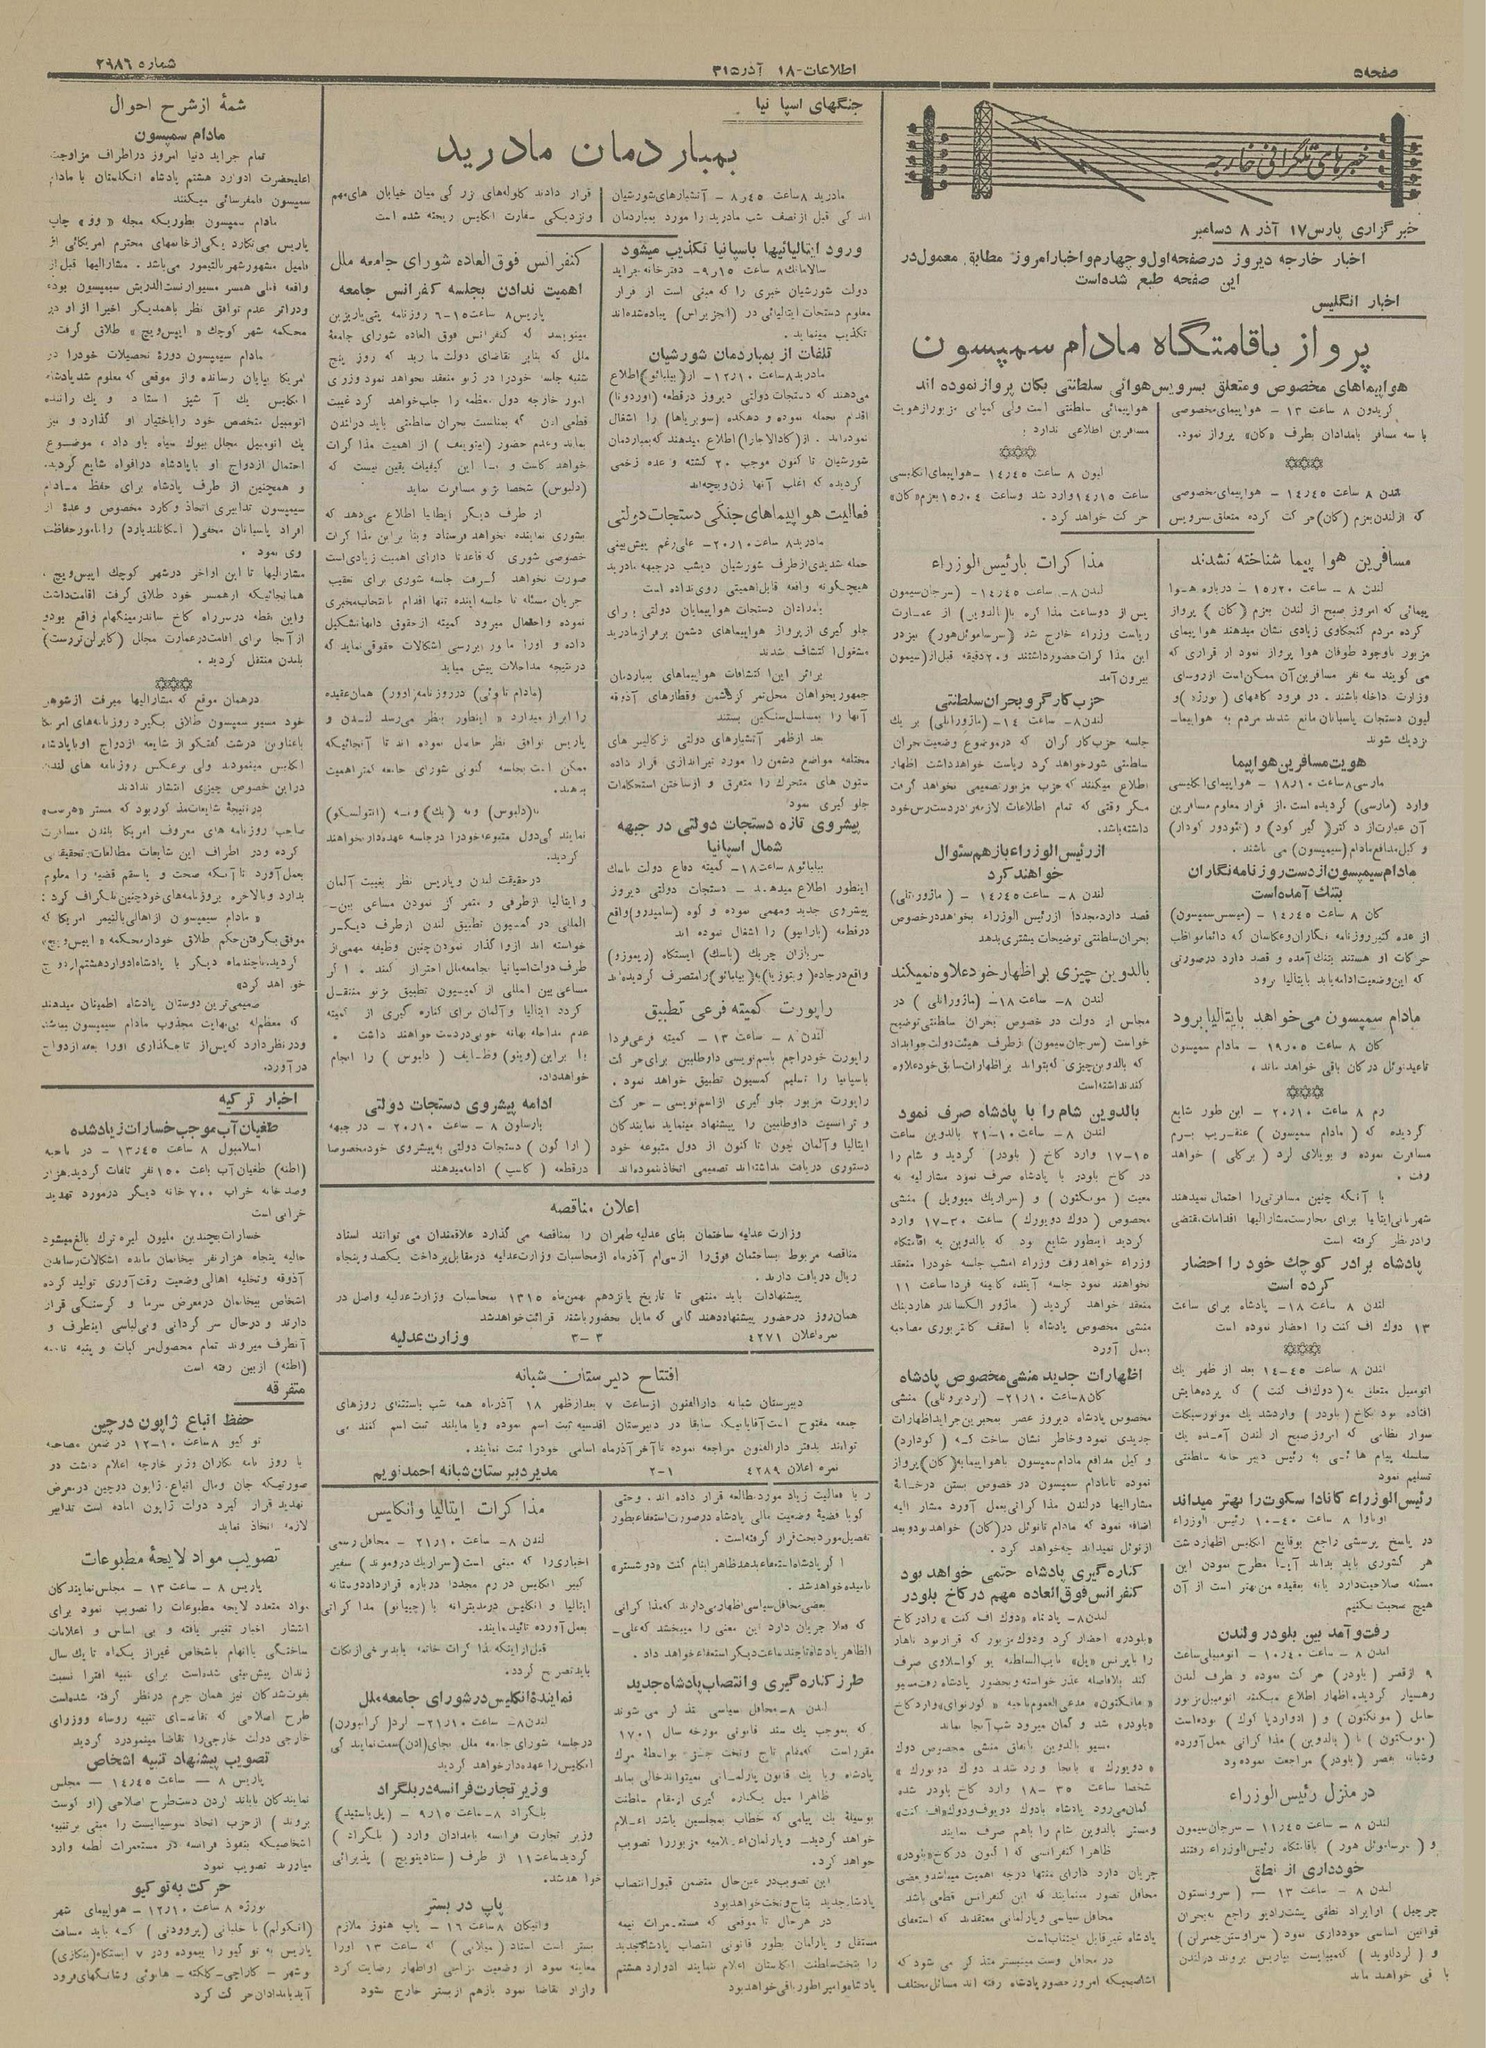 صفحه ۵
اطلاعات - ۱۸ آذر ۳۱۵
شماره ۲۹۸۶
خبرهای تلگرافی خارجه
خبرگزاری پارس ۱۷ آذر ۸ دسامبر
اخبار خارجه دیروز در صفحه اول و چهارم و اخبار امروز مطابق معمول در
این صفحه طبع شده است
اخبار انگلیس
پرواز باقامتگاه مادام سمپسون
هواپیماهای مخصوص و متعلق بسرویس هوائی سلطنتی بکان پرواز نموده اند
کریدون ۸ ساعت ۱۳ - هواپیمای مخصوصی
با سه مسافر بامدادان بطرف «کان» پرواز نمود.
لندن ۸ ساعت ۱۴٫۴۵ - هواپیمای مخصوصی
که از لندن بعزم (کان) حرکت کرده متعلق بسرویس
هواپیمائی سلطنتی است ولی کمپانی مزبور از هویت
مسافرین اطلاعی ندارد.
لیون ۸ ساعت ۱۴٫۴۵ - هواپیمای انگلیسی
ساعت ۱۴٫۱۵ وارد شد و ساعت ۱۵٫۰۴ بعزم «کان»
حرکت خواهد کرد.
مسافرین هوا پیما شناخته نشدند
لندن ۸ - ساعت ۱۵٫۲۰ - درباره هوا
پیمائی که امروز صبح از لندن بعزم (کان) پرواز
کرده مردم کنجکاوی زیادی نشان میدهند هواپیمای
مزبور باوجود طوفان هوا پرواز نمود از قراری که
می گویند سه نفر مسافرین آن ممکن است از روسای
وزارت داخله باشند. در فرود گاههای (بورژه) و
لیون دستجات پاسبانان مانع شدند مردم به هواپیما
نزدیک شوند
هویت مسافرین هواپیما
مارسی ۸ ساعت ۱۸٫۱۰ - هواپیمای انگلیسی
وارد (مارسی) گردیده است. از قرار معلوم مسافرین
آن عبارت از دکتر (کیر کود) و (تئودور کودار)
وکیل مدافع مادام (سیمپسون) می باشند.
مادام سیمپسون از دست روزنامه نگاران
بتنگ آمده است
کان ۸ ساعت ۱۴٫۴۵ - (میسس سیمپسون)
از عده کثیر روزنامه نگاران و عکاسان که دائما مواظب
حرکات او هستند بتنگ آمده و قصد دارد در صورتی
که این وضعیت ادامه یابد بایتالیا برود
مادام سمپسون می خواهد بایتالیا برود
کان ۸ ساعت ۱۹٫۰۵ - مادام سمپسون
تا عید نوئل در کان باقی خواهد ماند.
رم ۸ ساعت ۲۰٫۱۰ - این طور شایع
گردیده که (مادام سمپسون) عنقریب برم
مسافرت نموده و بویلای لرد (برکلی) خواهد
رفت.
با آنکه چنین مسافرتی را احتمال نمیدهند
شهربانی ایتالیا برای محارست مشارالیها اقدامات مقتضی
را در نظر گرفته است
پادشاه برادر کوچک خود را احضار
کرده است
لندن ۸ ساعت ۱۸- پادشاه برای ساعت
۱۳ دوک اف کنت را احضار نموده است
لندن ۸ ساعت ۱۴-۴۵ بعد از ظهر یک
اتومبیل متعلق به (دوک اف کنت) که پرده هایش
افتاده بود بکاخ (بلودر) وارد شد یک موتورسیکلت
سوار نظامی که امروز صبح از لندن آمده یک
سلسله پیام هائی به رئیس دبیر خانه سلطنتی
تسلیم نمود
رئیس الوزراء کانادا سکوت را بهتر میداند
اوتاوا ۸ ساعت ۱۰-۴۰ رئیس الوزراء
در پاسخ پرسشی راجع بوقایع انگلیس اظهار داشت
هر کشوری باید بداند آیا مطرح نمودن این
مسئله صلاحیت دارد یا نه بعقیده من بهتر است از آن
هیچ صحبت نکنیم
رفت و آمد بین بلودر و لندن
لندن ۸ - ساعت ۱۰٫۴۰ - اتومبیلی ساعت
۹ از قصر (بلودر) حرکت نموده و طرف لندن
رهسپار گردید. اظهار اطلاع میکنند اتومبیل مزبور
حامل (مونکتون) و (ادوارد پاکوک) بوده است
(مونکتون) با (بالدوین) مذاکراتی بعمل آورده
و شبانه بقصر (بلودر) مراجعت نموده بود
در منزل رئیس الوزراء
لندن ۸ - ساعت ۱۱٫۴۵ - سرجان سیمون
و (سر ساموئل هور) باقامتگاه رئیس الوزراء رفتند
خودداری از نطق
لندن ۸ - ساعت ۱۳ - (سر وینستون
چرچیل) از ایراد نطقی پشت رادیو راجع به بحران
قوانین اساسی خودداری نمود (سر اوستن چمبرلن)
و (لرد لوید) که میبایست بپاریس بروند در لندن
باقی خواهند ماند
مذاکرات با رئیس الوزراء
لندن ۸ - ساعت ۱۴٫۴۵ - (سرجان سیمون
پس از دو ساعت مذاکره با (بالدوین) از عمارت
ریاست وزراء خارج شد (سر ساموئل هور) نیز در
این مذاکرات حضور داشتند و ۲۰ دقیقه قبل از (سیمون
بیرون آمد
حزب کارگر و بحران سلطنتی
لندن ۸- ساعت ۱۴- (ماژور اتلی) بر یک
جلسه حزب کارگران که در موضوع وضعیت بحران
سلطنتی شور خواهد کرد ریاست خواهد داشت اظهار
اطلاع میکنند که حزب مزبور تصمیمی نخواهد گرفت
مگر وقتی که تمام اطلاعات لازمه را در دسترس خود
داشته باشد.
از رئیس الوزراء باز هم سئوال
خواهند کرد
لندن ۸ - ساعت ۱۴٫۴۵ - (ماژور اتلی)
قصد دارد مجددا از رئیس الوزراء بخواهد در خصوص
بحران سلطنتی توضیحات بیشتری بدهد
بالدوین چیزی بر اظهار خود علاوه نمیکند
لندن ۸- ساعت ۱۸- (ماژور اتلی) در
مجلس از دولت در خصوص بحران سلطنتی توضیح
خواست (سرجان سیمون) از طرف هیئت دولت جواب داد
که بالدوین چیزی که بتواند بر اظهارات سابق خود علاوه
کند نداشته است
بالدوین شام را با پادشاه صرف نمود
لندن ۸- ساعت ۲۱-۱۰ بالدوین ساعت
۱۷-۱۵ وارد کاخ (بلودر) گردید و شام را
در کاخ بلودر با پادشاه صرف نمود مشارالیه به
معیت (مونکتون) و (سر اریک میوویل) منشی
مخصوص (دوک دویورک) ساعت ۱۷-۳۰ وارد
گردید اینطور شایع بود که بالدوین به اقامتگاه
وزراء خواهد رفت وزراء امشب جلسه خود را منعقد
نخواهند نمود جلسه آینده کابینه فردا ساعت ۱۱
منعقد خواهد گردید (ماژور الکساندر هاردینک
منشی مخصوص پادشاه با اسقف کانتربوری مصاحبه
بعمل آورد
اظهارات جدید منشی مخصوص پادشاه
کان ۸ ساعت ۲۱٫۱۰- (لرد برونلی) منشی
مخصوص پادشاه دیروز عصر بمخبرین جراید اظهارات
جدیدی نمود و خاطر نشان ساخت که (کودارد)
وکیل مدافع مادام سمپسون با هواپیما به (کان) پرواز
نموده تا مادام سمپسون در خصوص بستن درخانه
مشارالیها در لندن مذاکراتی بعمل آورد مشارالیه
اضافه نمود که مادام تا نوئل در (کان) خواهد بود و بعد
از نوئل نمیداند چه خواهد کرد.
کناره گیری پادشاه حتمی خواهد بود
کنفرانس فوق العاده مهم در کاخ بلودر
لندن ۸- پادشاه «دوک اف کنت» را در کاخ
«بلودر» احضار کرد و دوک مزبور که قرار بود ناهار
را با پرنس «پل» نایب السلطنه یوگواسلاوی صرف
کند بلافاصله عذر خواسته و بحضور پادشاه رفت مسیو
«مانکتون» مدعی العموم ناحیه «کورنوای» وارد کاخ
«بلودر» شد و گمان میرود شب آنجا بماند
مسیو بالدوین باتفاق منشی مخصوص دوک
«دویورک» بآنجا وارد شدند دوک دویورک
شخصا ساعت ۱۸-۳۵ وارد کاخ بلودر شده
گمان می رود پادشاه با دوک دویورک و دوک «اف کنت»
و مستر بالدوین شام را باهم صرف نمایند
ظاهرا کنفرانسی که اکنون در کاخ «بلودر»
جریان دارد دارای منتها درجه اهمیت میباشد و بعضی
محافل تصور مینمایند که این کنفرانس قطعی باشد
محافل سیاسی و پارلمانی معتقدند که استعفای
پادشاه غیر قابل اجتناب است
در محافل وست مینیستر متذکر می شود که
اشخاصیکه امروز حضور پادشاه رفته اند مسائل مختلف
جنگهای اسپانیا
بمباردمان مادرید
مادرید ۸ ساعت ۸٫۴۵ - آتشبارهای شورشیان
اندکی قبل از نصف شب مادرید را مورد بمباردمان
قرار دادند گلوله های بزرگی میان خیابان های مهم
و نزدیکی سفارت انگلیس ریخته شده است
ورود ایتالیائیها باسپانیا تکذیب میشود
سالامانک ۸ ساعت ۹٫۱۵- دفترخانه جراید
دولت شورشیان خبری را که مبنی است از قرار
معلوم دستجات ایتالیائی در (الجزیراس) پیاده شده اند
تکذیب مینماید.
تلفات از بمباردمان شورشیان
مادرید ۸ ساعت ۱۲٫۱۰- از (بیلبائو) اطلاع
میدهند که دستجات دولتی دیروز در قطعه (اوردونا)
اقدام بحمله نموده و دهکده (سوبریاها) را اشغال
نموده اند. از (گادالاجارا) اطلاع میدهند که بمباردمان
شورشیان تا کنون موجب ۲۰ کشته و عده زخمی
گردیده که اغلب آنها زن و بچه اند
فعالیت هواپیماهای جنگی دستجات دولتی
مادرید ۸ ساعت ۲۰٫۱۰- علی رغم پیش بینی
حمله شدیدی از طرف شورشیان دیشب در جبهه مادرید
هیچگونه واقعه قابل اهمیتی روی نداده است
بامدادان دستجات هواپیمایان دولتی برای
جلوگیری از پرواز هواپیماهای دشمن بر فراز مادرید
مشغول اکتشاف شدند
براثر این اکتشافات هواپیماهای بمباردمان
جمهوریخواهان محل تمرکز دشمن و قطارهای آذوقه
آنها را بمسلسل سنگین بستند
بعد از ظهر آتشبارهای دولتی از کالیبر های
مختلفه مواضع دشمن را مورد تیراندازی قرار داده
ستون های متحرک را متفرق و از ساختن استحکامات
جلوگیری نمود
پیشروی تازه دستجات دولتی در جبهه
شمال اسپانیا
بیلبائو ۸ ساعت ۱۸- کمیته دفاع دولت باسک
اینطور اطلاع میدهد - دستجات دولتی دیروز
پیشروی جدید و مهمی نموده و کوه (سامیدرو) واقع
در قطعه (بارامبیو) را اشغال نموده اند
سربازان چریک (باسک) ایستگاه (ریموزو)
واقع در جاده (ویتوریا) به (بیلبائو) را متصرف گردیده اند
راپورت کمیته فرعی تطبیق
لندن ۸ - ساعت ۱۳ - کمیته فرعی فردا
راپورت خود راجع باسم نویسی داوطلبین برای حرکت
باسپانیا را تسلیم کمسیون تطبیق خواهد نمود.
راپورت مزبور جلوگیری از اسم نویسی - حرکت
و ترانسیت داوطلبین را پیشنهاد مینماید نمایندگان
ایتالیا و آلمان چون تا کنون از دول متبوعه خود
دستوری دریافت نداشته اند تصمیمی اتخاذ ننموده اند
کنفرانس فوق العاده شورای جامعه ملل
اهمیت ندادن بجلسه کنفرانس جامعه
پاریس ۸ ساعت ۶-۱۵ روزنامه پتی پاریزین
مینویسد که کنفرانس فوق العاده شورای جامعه
ملل که بنابر تقاضای دولت مادرید که روز پنج
شنبه جلسه خود را در ژنو منعقد نخواهد نمود وزرای
امور خارجه دول معظمه را جلب خواهد کرد غیبت
قطعی ادن که بمناسبت بحران سلطنتی باید در لندن
بماند و عدم حضور (لیتوینف) از اهمیت مذاکرات
خواهد کاست و با این کیفیات یقین نیست که
(دلبوس) شخصا بژنو مسافرت نماید
از طرف دیگر ایطالیا اطلاع میدهد که
بشوری نماینده نخواهد فرستاد و بنابراین مذاکرات
خصوصی شوری که قاعدتا دارای اهمیت زیادی است
صورت نخواهد گرفت جلسه شوری برای تعقیب
جریان مسئله تا جلسه آینده تنها اقدام بانتخاب مخبری
نموده و احتمال میرود کمیته از حقوق دانها تشکیل
داده و او را مامور بررسی اشکالات حقوقی نماید که
در نتیجه مداخلات پیش میاید
(مادام تابوئی) در روزنامه (اوور) همان عقیده
را ابراز میدارد « اینطور بنظر می رسد لندن و
پاریس توافق نظر حاصل نموده اند تا آنجائیکه
ممکن است بجلسه کنونی شورای جامعه کمتر اهمیت
بدهند.
(دلبوس) و به (بک) و نه (انتونسکو)
نمایندگی دول متبوعه خود را در جلسه عهده دار خواهند
گردید.
در حقیقت لندن و پاریس نظر بغیبت آلمان
و ایتالیا از طرفی و متمرکز نمودن مساعی بین-
المللی در کمسیون تطبیق لندن از طرف دیگر
خواسته اند از واگذار نمودن چنین وظیفه مهمی از
طرف دولت اسپانیا بجامعه ملل احتراز کنند. اگر
مساعی بین المللی از کمیسیون تطبیق بژنو منتقل
گردد ایتالیا و آلمان برای کناره گیری از کمیته
عدم مداخله بهانه خوبی در دست خواهند داشت.
بنابراین (وینو) وظایف (دلبوس) را انجام
خواهد داد.
ادامه پیشروی دستجات دولتی
بارسلون ۸ - ساعت ۲۰٫۱۰ - در جبهه
(اراگون) دستجات دولتی به پیشروی خود مخصوصا
در قطعه (کاسپ) ادامه میدهند
اعلان مناقصه
وزارت عدلیه ساختمان بنای عدلیه طهران را بمناقصه می گذارد علاقمندان می توانند اسناد
مناقصه مربوط بساختمان فوق را از سی ام آذرماه از محاسبات وزارت عدلیه در مقابل پرداخت یکصد و پنجاه
ریال دریافت دارند.
پیشنهادات باید منتهی تا تاریخ پانزدهم بهمن ماه ۱۳۱۵ بمحاسبات وزارت عدلیه واصل در
همان روز در حضور پیشنهاد دهندگانی که مایل بحضور باشند قرائت خواهد شد
نمره اعلان ۴۲۷۱ ۳-۳ وزارت عدلیه
افتتاح دبیرستان شبانه
دبیرستان شبانه دارالفنون از ساعت ۷ بعد از ظهر ۱۸ آذرماه همه شب باستثنای روزهای
جمعه مفتوح است آقایانیکه سابقا در دبیرستان اقدسیه ثبت اسم نموده و یا مایلند ثبت اسم کنند می
توانند بدفتر دارالفنون مراجعه نموده تا آخر آذرماه اسامی خود را ثبت نمایند.
نمره اعلان ۴۲۸۹ ۲-۱ مدیر دبیرستان شبانه احمد نویم
را با فعالیت زیاد مورد مطالعه قرار داده اند. و حتی
گویا قضیهٔ وضعیت مالی پادشاه در صورت استعفاء بطور
تفصیل مورد بحث قرار گرفته است.
اگر پادشاه استعفاء بدهد ظاهرا بنام کنت «دو شستر»
نامیده خواهد شد.
بعضی محافل سیاسی اظهار می دارند که مذاکراتی
که فعلا جریان دارد این معنی را میبخشد که علی-
الظاهر پادشاه تا چند ساعت دیگر استعفاء خواهد داد.
طرز کناره گیری و انتصاب پادشاه جدید
لندن ۸- محافل سیاسی متذکر می شوند
که بموجب یک سند قانونی مورخه سال ۱۷۰۱
مقرر است که مقام تاج و تخت جز بواسطهٔ مرگ
پادشاه و یا یک قانون پارلمانی نمیتواند خالی بماند
ظاهرا میل بکناره گیری از مقام سلطنت
بوسیله یک پیامی که خطاب بمجلسین باشد اعلام
خواهد گردید و پارلمان اعلامیه مزبور را تصویب
خواهد کرد.
این تصویب در عین حال متضمن قبول انتصاب
پادشاه جدید بتاج و تخت خواهد بود
در هر حال تا موقعی که مستعمرات نیمه
مستقل و پارلمان بطور قانونی انتصاب پادشاه جدید
را بتخت سلطنت انگلستان اعلام ننمایند ادوارد هشتم
پادشاه و امپراطور باقی خواهد بود
مذاکرات ایتالیا و انگلیس
لندن ۸- ساعت ۲۱٫۱۰ - محافل رسمی
اخباری را که مبنی است (سر اریک دروموند) سفیر
کبیر انگلیس در رم مجددا درباره قرارداد دوستانه
ایتالیا و انگلیس در مدیترانه با (چیانو) مذاکراتی
بعمل آورده تائید مینمایند.
قبل از اینکه مذاکرات خاتمه یابد برخی از نکات
باید تصریح گردد.
نمایندهٔ انگلیس در شورای جامعه ملل
لندن ۸- ساعت ۲۱٫۱۰- لرد (کرانبورن)
در جلسه شورای جامعه ملل بجای (ادن) سمت نمایندگی
انگلیس را عهده دار خواهد گردید
وزیر تجارت فرانسه در بلگراد
بلگراد ۸- ساعت ۹٫۱۵ - (پل باستید)
وزیر تجارت فرانسه بامدادان وارد (بلگراد)
گردید ساعت ۱۱ از طرف (ستادینویچ) پذیرائی
خواهد شد.
پاپ در بستر
واتیکان ۸ ساعت ۱۶ - پاپ هنوز ملازم
بستر است استاد (میلانی) که ساعت ۱۳ او را
معاینه نمود از وضعیت مزاجی او اظهار رضایت کرد
و از او تقاضا نمود باز هم از بستر خارج نشود
شمهٔ از شرح احوال
مادام سمپسون
تمام جراید دنیا امروز در اطراف مزاوجت
اعلیحضرت ادوارد هشتم پادشاه انگلستان با مادام
سمپسون قلمفرسائی میکنند
مادام سمپسون بطوریکه مجله «وو» چاپ
پاریس می نگارد یکی از خانمهای محترم امریکائی از
فامیل مشهور شهر بالتیمور می باشد. مشارالیها قبل از
واقعه فعلی همسر مسیو ارنست الدریش سیمپسون بوده
و در اثر عدم توافق نظر با همدیگر اخیرا از او در
محکمه شهر کوچک «ایپس ویچ» طلاق گرفت
مادام سیمپسون دورهٔ تحصیلات خود را در
امریکا بپایان رسانده و از موقعی که معلوم شد پادشاه
انگلیس یک آشپز استاد و یک راننده
اتومبیل متخصص خود را باختیار او گذارد و نیز
یک اتومبیل مجلل بیوک سیاه باو داد، موضوع
احتمال ازدواج او با پادشاه در افواه شایع گردید.
و همچنین از طرف پادشاه برای حفظ مادام
سیمپسون تدابیری اتخاذ و گارد مخصوص و عدهٔ از
افراد پاسبانان مخفی (اسکاتلندیارد) را مامور حفاظت
وی نمود.
مشارالیها تا این اواخر در شهر کوچک ایپس ویچ،
همانجائیکه از همسر خود طلاق گرفت اقامت داشت
و این نقطه در سر راه کاخ ساندرینگهام واقع بود و
از آنجا برای اقامت در عمارت مجلل (کابرلن تررست)
بلندن منتقل گردید.
در همان موقع که مشارالیها میرفت از شوهر
خود مسیو سمپسون طلاق بگیرد روزنامه های امریکا
با عناوین درشت گفتگو از شایعه ازدواج او با پادشاه
انگلیس مینمودند ولی بر عکس روزنامه های لندن
در این خصوص چیزی انتشار ندادند
در نتیجهٔ شایعات مذکور بود که مستر «هرست»
صاحب روزنامه های معروف امریکا بلندن مسافرت
کرده و در اطراف این شایعات مطالعات تحقیقی
بعمل آورد تا آنکه صحت و یا سقم قضیه را معلوم
بدارد و بالاخره بروزنامه های خود چنین تلگراف کرد:
«مادام سیمپسون از اهالی بالتیمر امریکا که
موفق بگرفتن حکم طلاق خود از محکمه «ایپس ویچ»
گردید، تا چند ماه دیگر با پادشاه ادوارد هشتم ازدواج
خواهد کرد»
صمیمی ترین دوستان پادشاه اطمینان میدهند
که معظم له بی نهایت مجذوب مادام سیمپسون میباشد
و در نظر دارد که پس از تاجگذاری او را بعقد ازدواج
در آورد.
اخبار ترکیه
طغیان آب موجب خسارات زیاد شده
اسلامبول ۸ ساعت ۱۳٫۴۵ - در ناحیه
(اطنه) طغیان آب باعث ۱۵۰ نفر تلفات گردید. هزار
و صد خانه خراب ۷۰۰ خانه دیگر در مورد تهدید
خرابی است
خسارات بچندین ملیون لیره ترک بالغ میشود
حالیه پنجاه هزار نفر بیخانمان مانده اشکالات رساندن
آذوقه و تخلیه اهالی وضعیت رقت آوری تولید کرده
اشخاص بیخانمان در معرض سرما و گرسنگی قرار
دارند و در حال سرگردانی و بی لباسی اینطرف و
آنطرف میروند تمام محصول مرکبات و پنبه ناحیه
(اطنه) از بین رفته است
متفرقه
حفظ اتباع ژاپون در چین
توکیو ۸ ساعت ۱۲-۱۰ در ضمن مصاحبه
با روزنامه نگاران وزیر خارجه اعلام داشت در
صورتیکه جان و مال اتباع ژاپون در چین در معرض
تهدید قرار گیرد دولت ژاپون آماده است تدابیر
لازمه اتخاذ نماید
تصویب مواد لایحهٔ مطبوعات
پاریس ۸ - ساعت ۱۳ - مجلس نمایندگان
مواد متعدد لایحه مطبوعات را تصویب نمود برای
انتشار اخبار تغییر یافته و بی اساس و اعلانات
ساختگی با اتهام باشخاص غیر از یکماه تا یک سال
زندان پیش بینی شده است برای تنبیه افترا نسبت
بفوت شدگان نیز همان جرم در نظر گرفته شده است
طرح اصلاحی که تقاضای تنبیه روساء و وزرای
خارجی دولت خارجی را تقاضا مینمود رد گردید
تصویب پیشنهاد تنبیه اشخاص
پاریس ۸ - ساعت ۱۴٫۴۵ - مجلس
نمایندگان با بلند کردن دست طرح اصلاحی (اوگوست
بروند) از حزب اتحاد سوسیالیست را مبنی بر تنبیه
اشخاصیکه بنفوذ فرانسه در مستعمرات لطمه وارد
میاورند تصویب نمود
حرکت به توکیو
بورژه ۸ ساعت ۱۲٫۱۰ - هواپیمای شهر
(انگولم) با خلبانی (پروودنی) که باید مسافت
پاریس به توکیو را بپیموده و در ۷ ایستگاه (بنغازی)
بوشهر - کراچی - کلکته - هانوئی و شانگهای فرود
آید بامدادان حرکت کرد